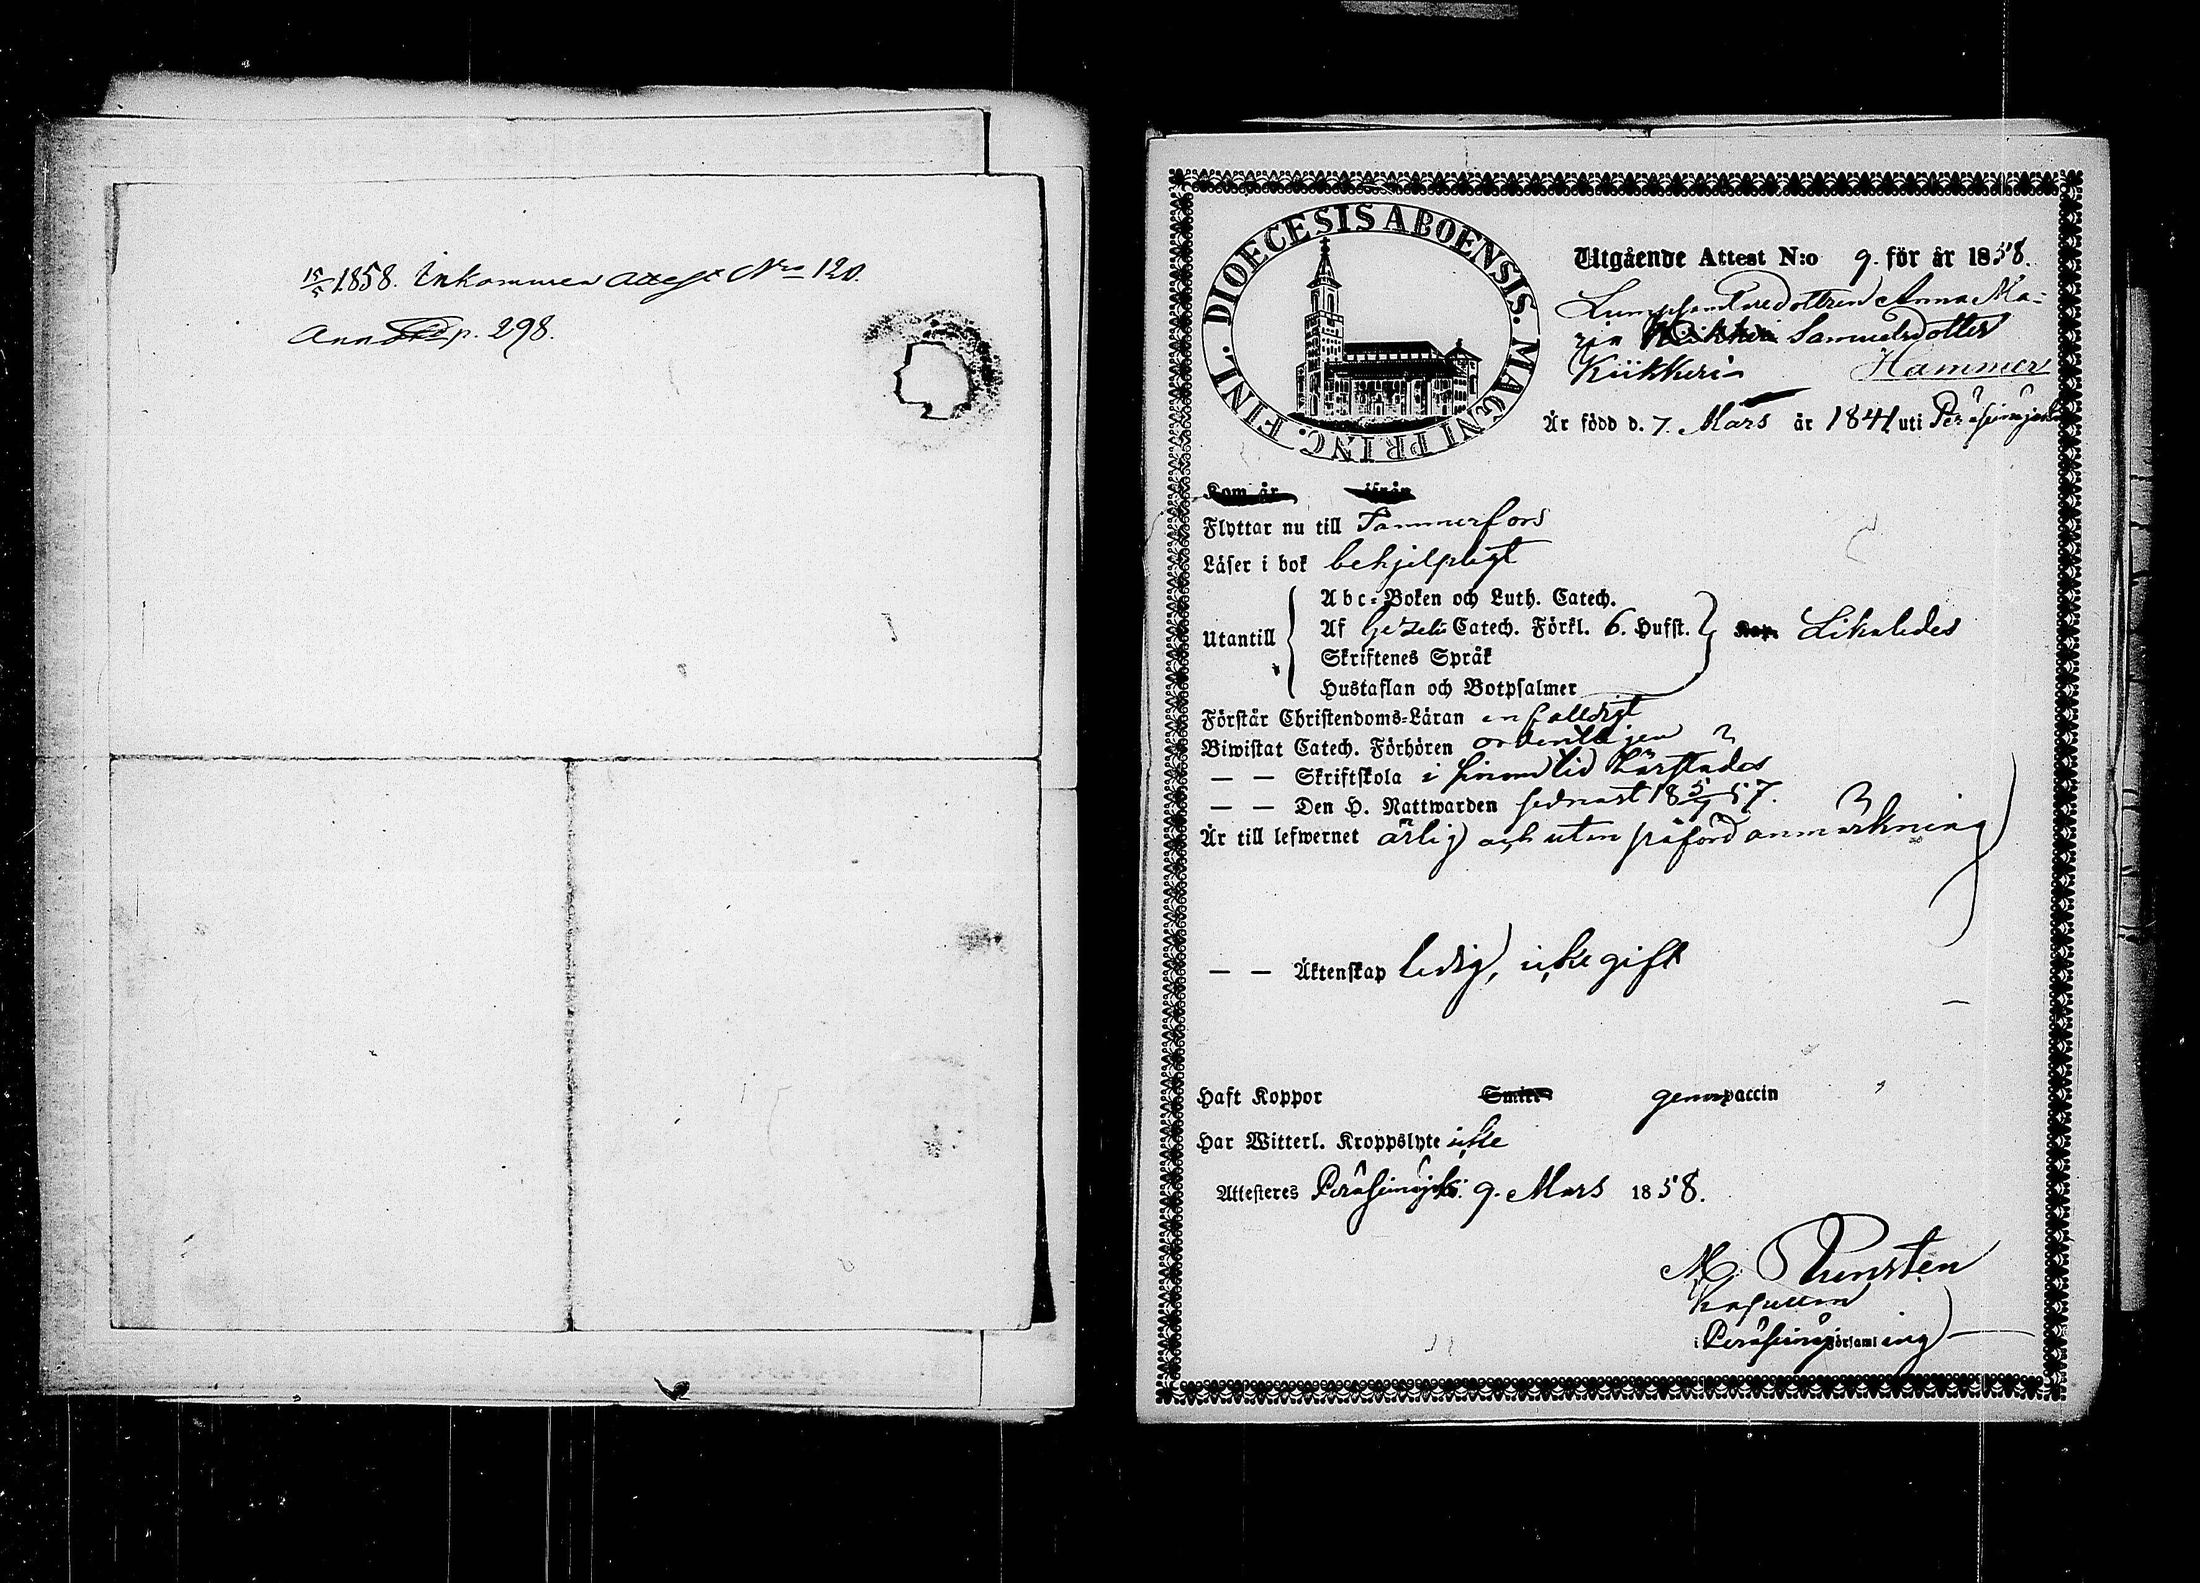 15/5 1858. Inkommen attest Nro 120.
Ann p. 298.
DIOECESIS ABOENSIS. MAGNI PRINC. FINL.
Utgående Attest N:o 9. för år 1858.
Anna Ma-
ria Samuelsdotter
Kiikkeri Hammer
Är född d. 7. Mars år 1841 uti Peräseinäjoki
Kom år ifrån
Flyttar nu till Tammerfors
Läser i bok behjelpligt
Abc-Boken och Luth. Catech.
Utantill Af Gezelii Catech. Förkl. 6. Hufst. Likaledes
Skriftenes Språk
Hustaflan och Botpsalmer
Förstår Christendoms-Läran enfalldigt
Biwistat Catech. Förhören ordentligen
— — Skriftskola i sinom tid härstädes
— — Den H. Nattwarden sednast 18 5/7 57.
Är till lefwernet ärlig och utan påförd anmärkning
— — Äktenskap ledig, icke gift
Haft Koppor Smitt genom vaccin
Har Witterl. Kroppslyte icke
Attesteres Peräseinäjoki 9. Mars 1858.
M.
Kapellan
i Peräseinäj församling